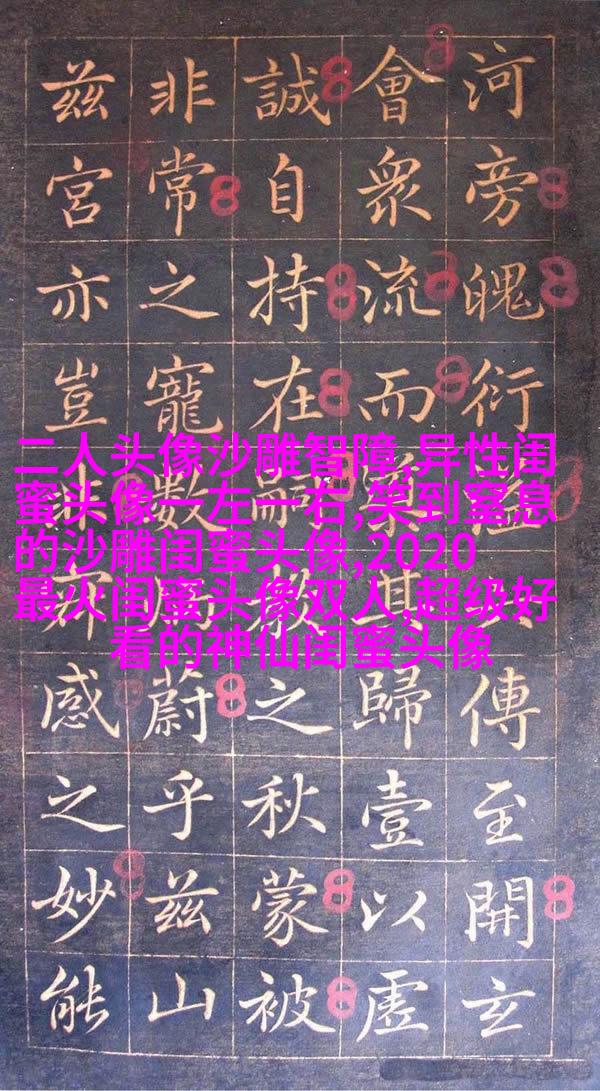 河旁魄衍溢傳至開玄
會衆流而其歸壹以虛
誠自持在嗣教之秋蒙被
非常之寵數蔚乎兹山
兹宮亦豈感之妙能
二人头像沙雕智障,异性闺
蜜头像一左一右,笑到窒息
的沙雕闺蜜头像,2020
最火闺蜜头像双人,超级好
看的神仙闺蜜头像